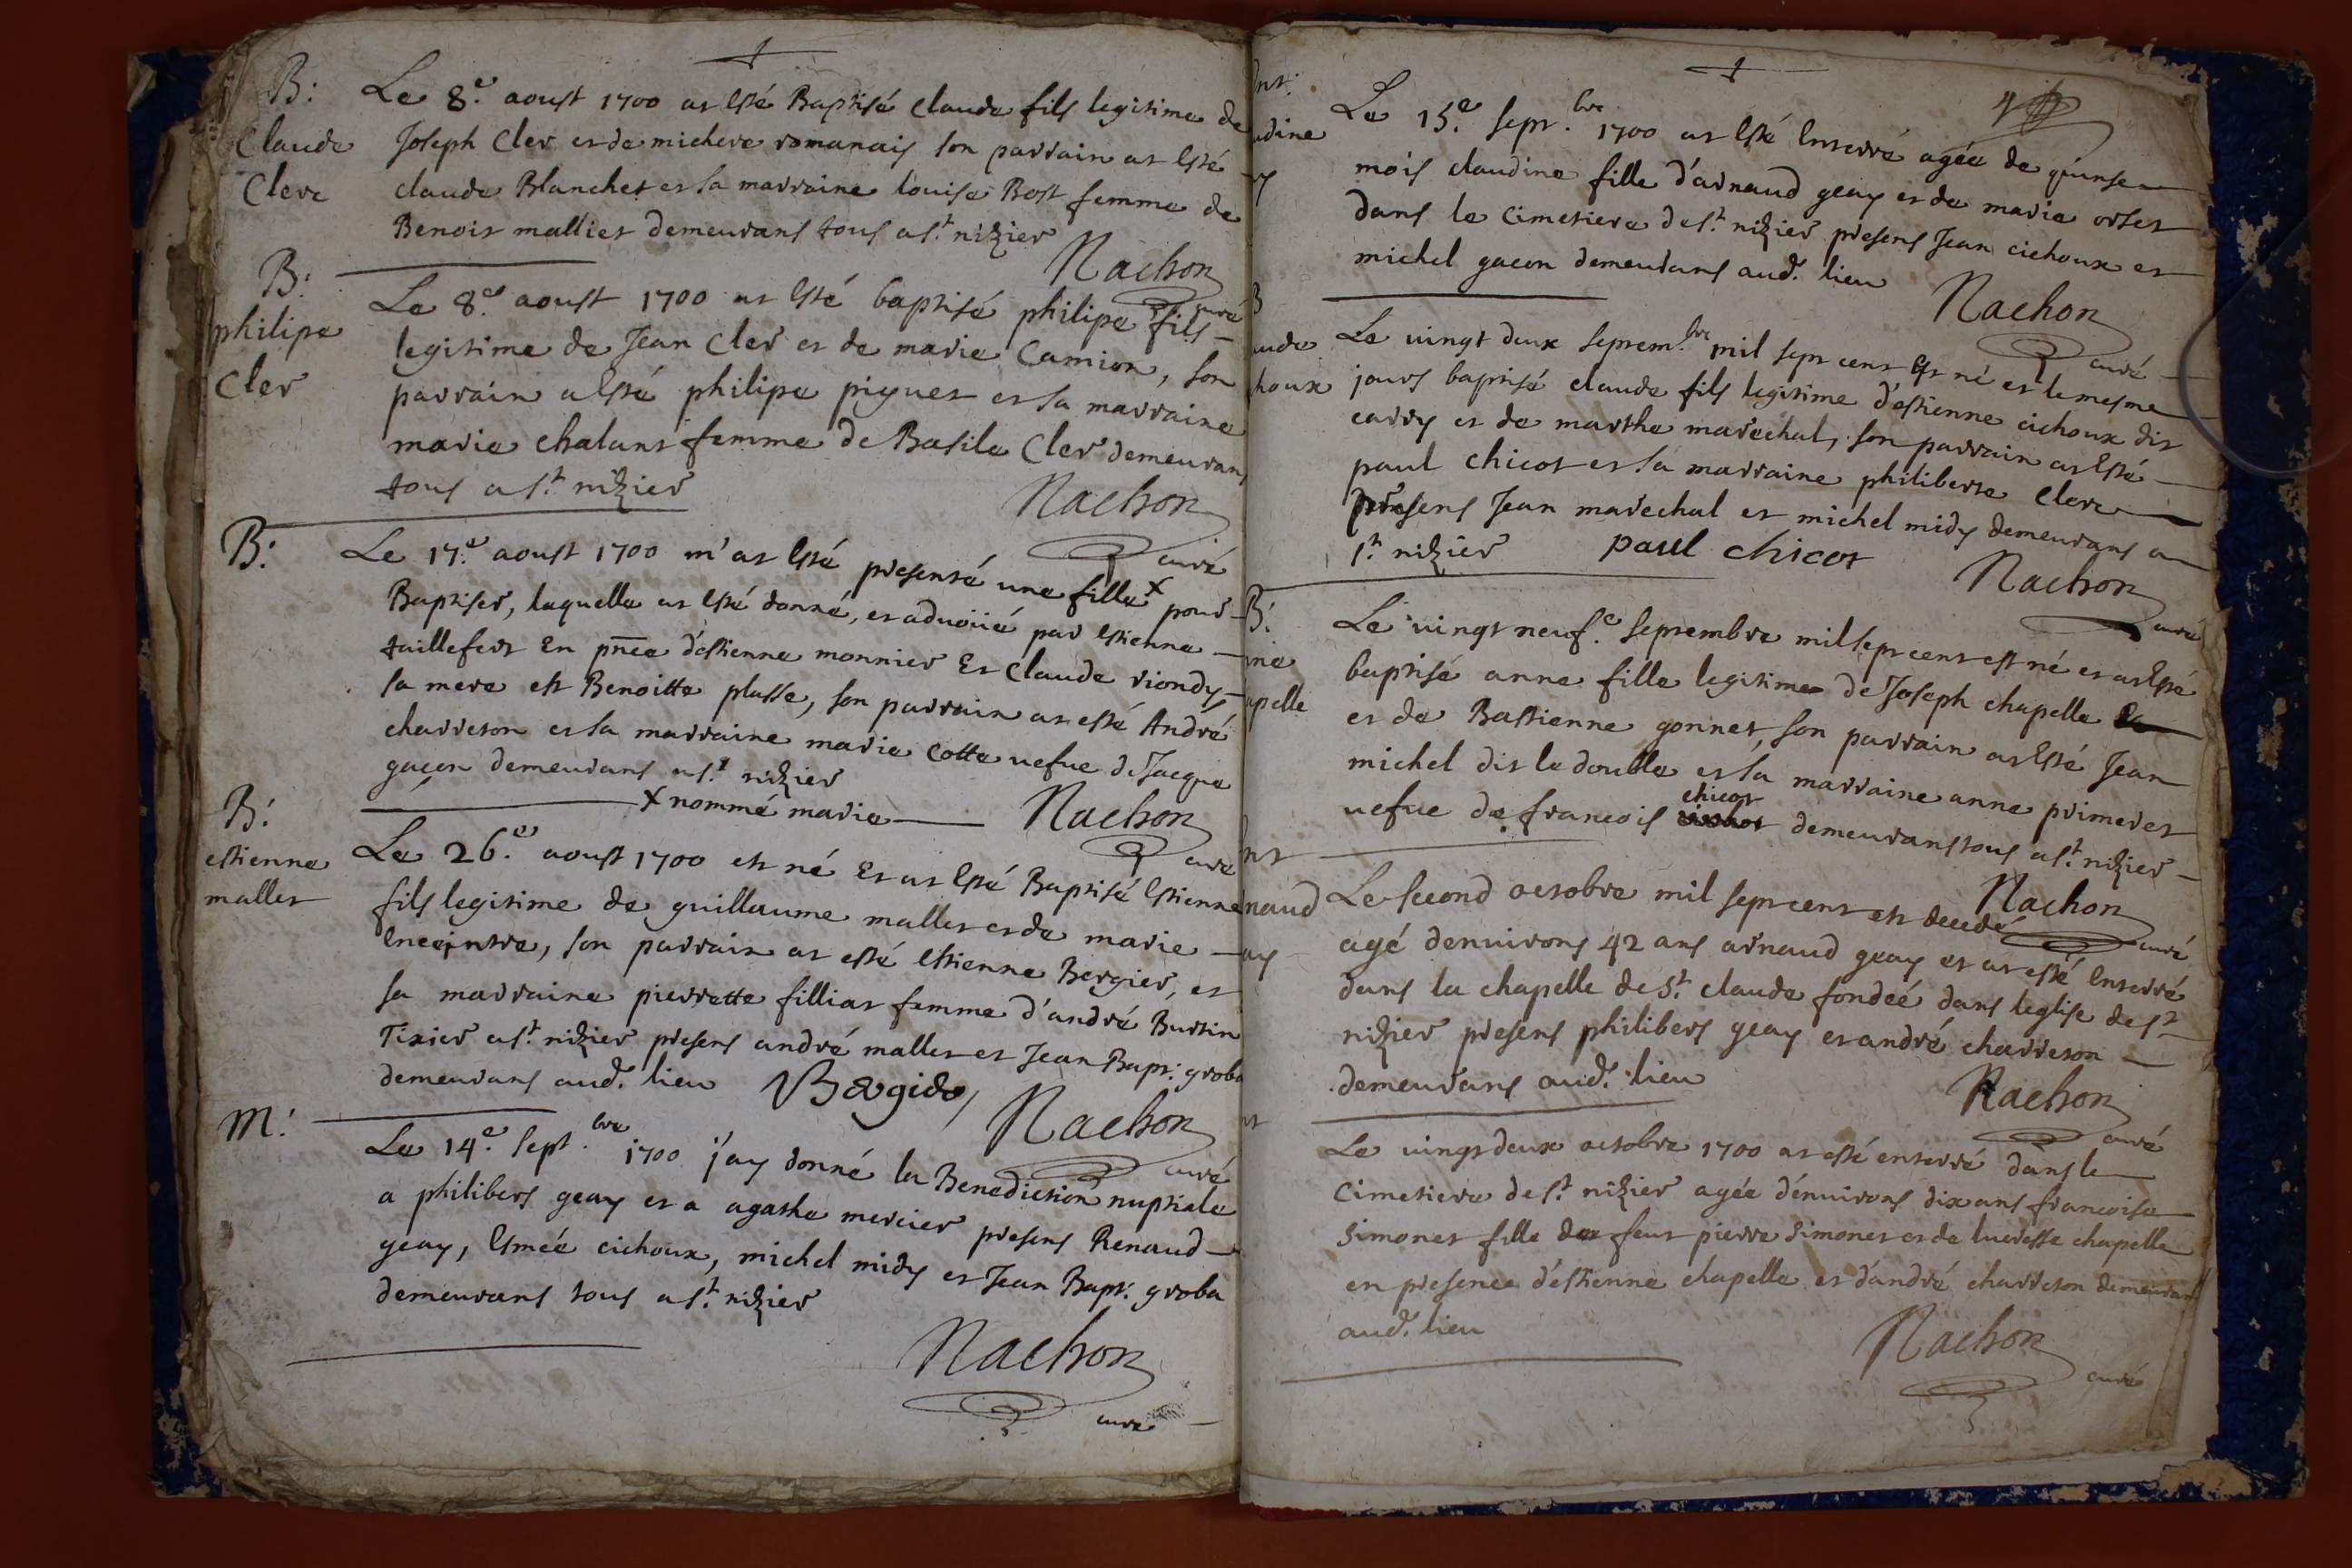 B:
Claude
Clerc
Le 8.e aoust 1700 at esté Baptisé claude fils legitime de
Joseph Cler et de michere romanais son parrain at esté
claude Blanchet et sa marraine louise Rost femme de
Benoit malliet demeurans tous a s.t nizier
Nachon
curé
B:
philipe
Cler
Le 8.e aoust 1700 at esté baptisé philipe fils
legitime de Jean Cler et de marie Camion, son
parrain a esté philipe piguet et sa marraine
marie chalant femme de Basile Cler demeurans
tous a s.t nizier
Nachon
curé
B:
Le 17.e aoust 1700 m'at esté presenté une fille x pour
Baptiser, laquelle at esté donné, et advoüé par estienne
taillefert En pnce d'estienne monnier Et Claude riondy
sa mere est Benoitte plasse, son parrain at esté André
charreton et sa marraine marie Cotte vefue de Jacque
gaçon demeurans a s.t nizier
x nommé marie
Nachon
curé
B:
estienne
mallet
Le 26.e aoust 1700 est né Et at esté Baptisé Estienne
fils legitime de guillaume mallet et de marie
Enceintre, son parrain at esté Estienne Bergier, et
sa marraine pierrette filliat femme d'andré Burtin
Tixier a s.t nizier presens andré mallet et Jean Bapt: groba
demeurans aud. lieu
Nachon
curé
M:
Le 14.e sept.bre 1700 j'ay donné la Benediction nuptiale
a philibert geay et a agathe mercier presens Renaud
geay, Esmée cichoux, michel midy et Jean Bapt: groba
demeurans tous a s.t nizier
Nachon
curé
Le 15.e sept.bre 1700 at esté Enterré agée de quinse
mois claudine fille d'arnaud geay et de marie orset
dans le cimetiere de s.t nizier presens Jean cichoux et
michel gacon demeurans aud. lieu
Nachon
curé
Le vingt deux septem.bre mil sept cent Est né et le mesme
jours baptisé claude fils legitime d'estienne cichoux dit
carry et de marthe marechal, son parrain at Esté
paul chicot et sa marraine philiberte Clerc
presens Jean marechal et michel midy demeurans a
s.t nizier
paul chicot
Nachon
curé
B:
Le vingt neuf.e septembre mil sept cent est né et at Esté
baptisé anne fille legitime de Joseph chapelle
et de Bastienne gonnet, son parrain at Esté Jean
michel dit le double et sa marraine anne primeret
vefue de francois chicot demeurans tous a s.t nizier
Nachon
curé
Le second octobre mil sept cent est decedé
agé denuirons 42 ans arnaud geay et at esté Enterré
dans la chapelle de s.t claude fondée dans leglise de s.t
nizier presens philibert geay et andré charreton
demeurans aud. lieu
Nachon
curé
Le vingt deux octobre 1700 at esté enterré dans le
Cimetiere de s.t nizier agée d'enuirons dix ans francoise
Simonet fille de feut pierre Simonet et de lucresse chapelle
en presence d'estienne chapelle et d'andré charreton demeurans
aud. lieu
Nachon
curé